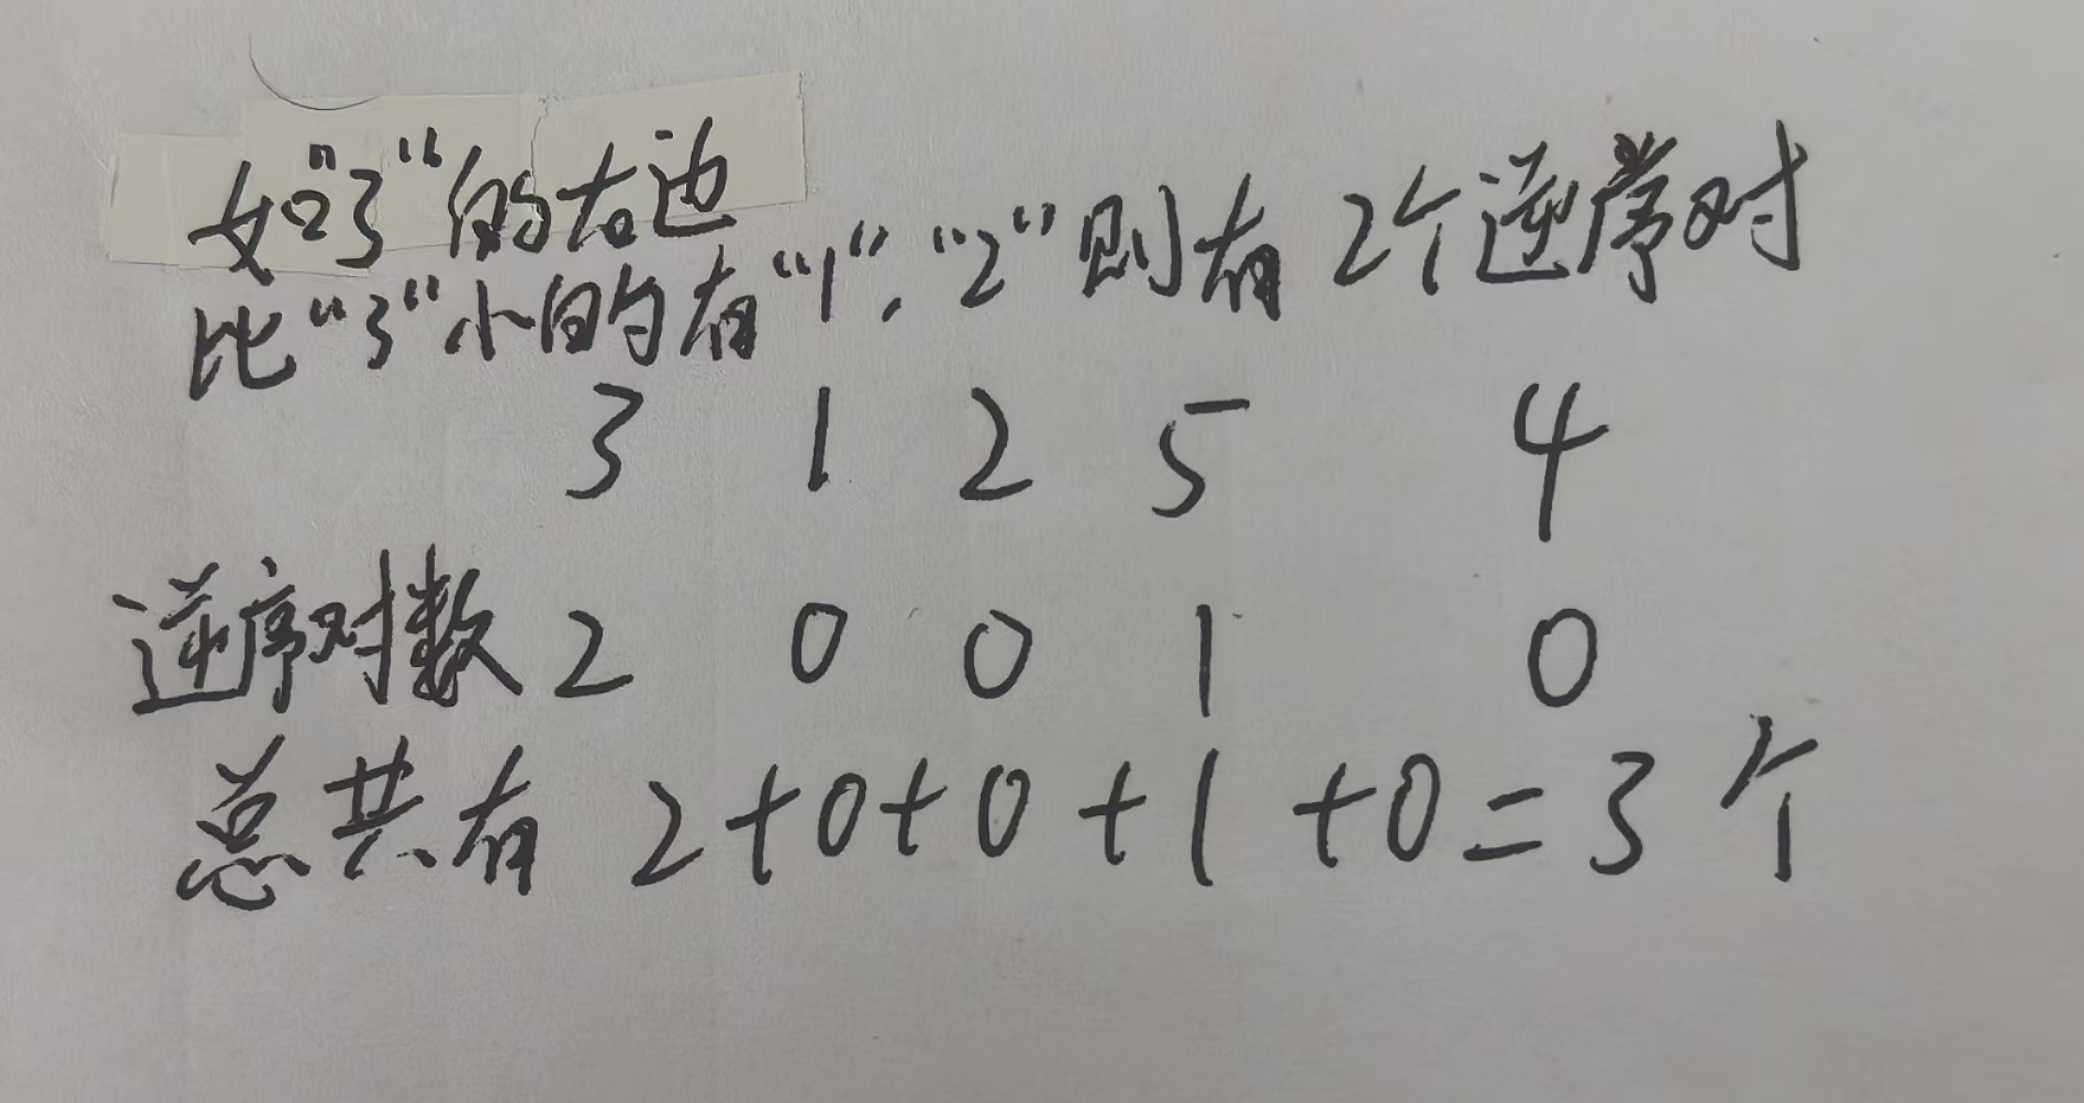 如"3"的右边
比"3"小的有"1"、"2"则有2个逆序对
3 1 2 5 4
逆序对数 2 0 0 1 0
总共有 2+0+0+1+0=3个